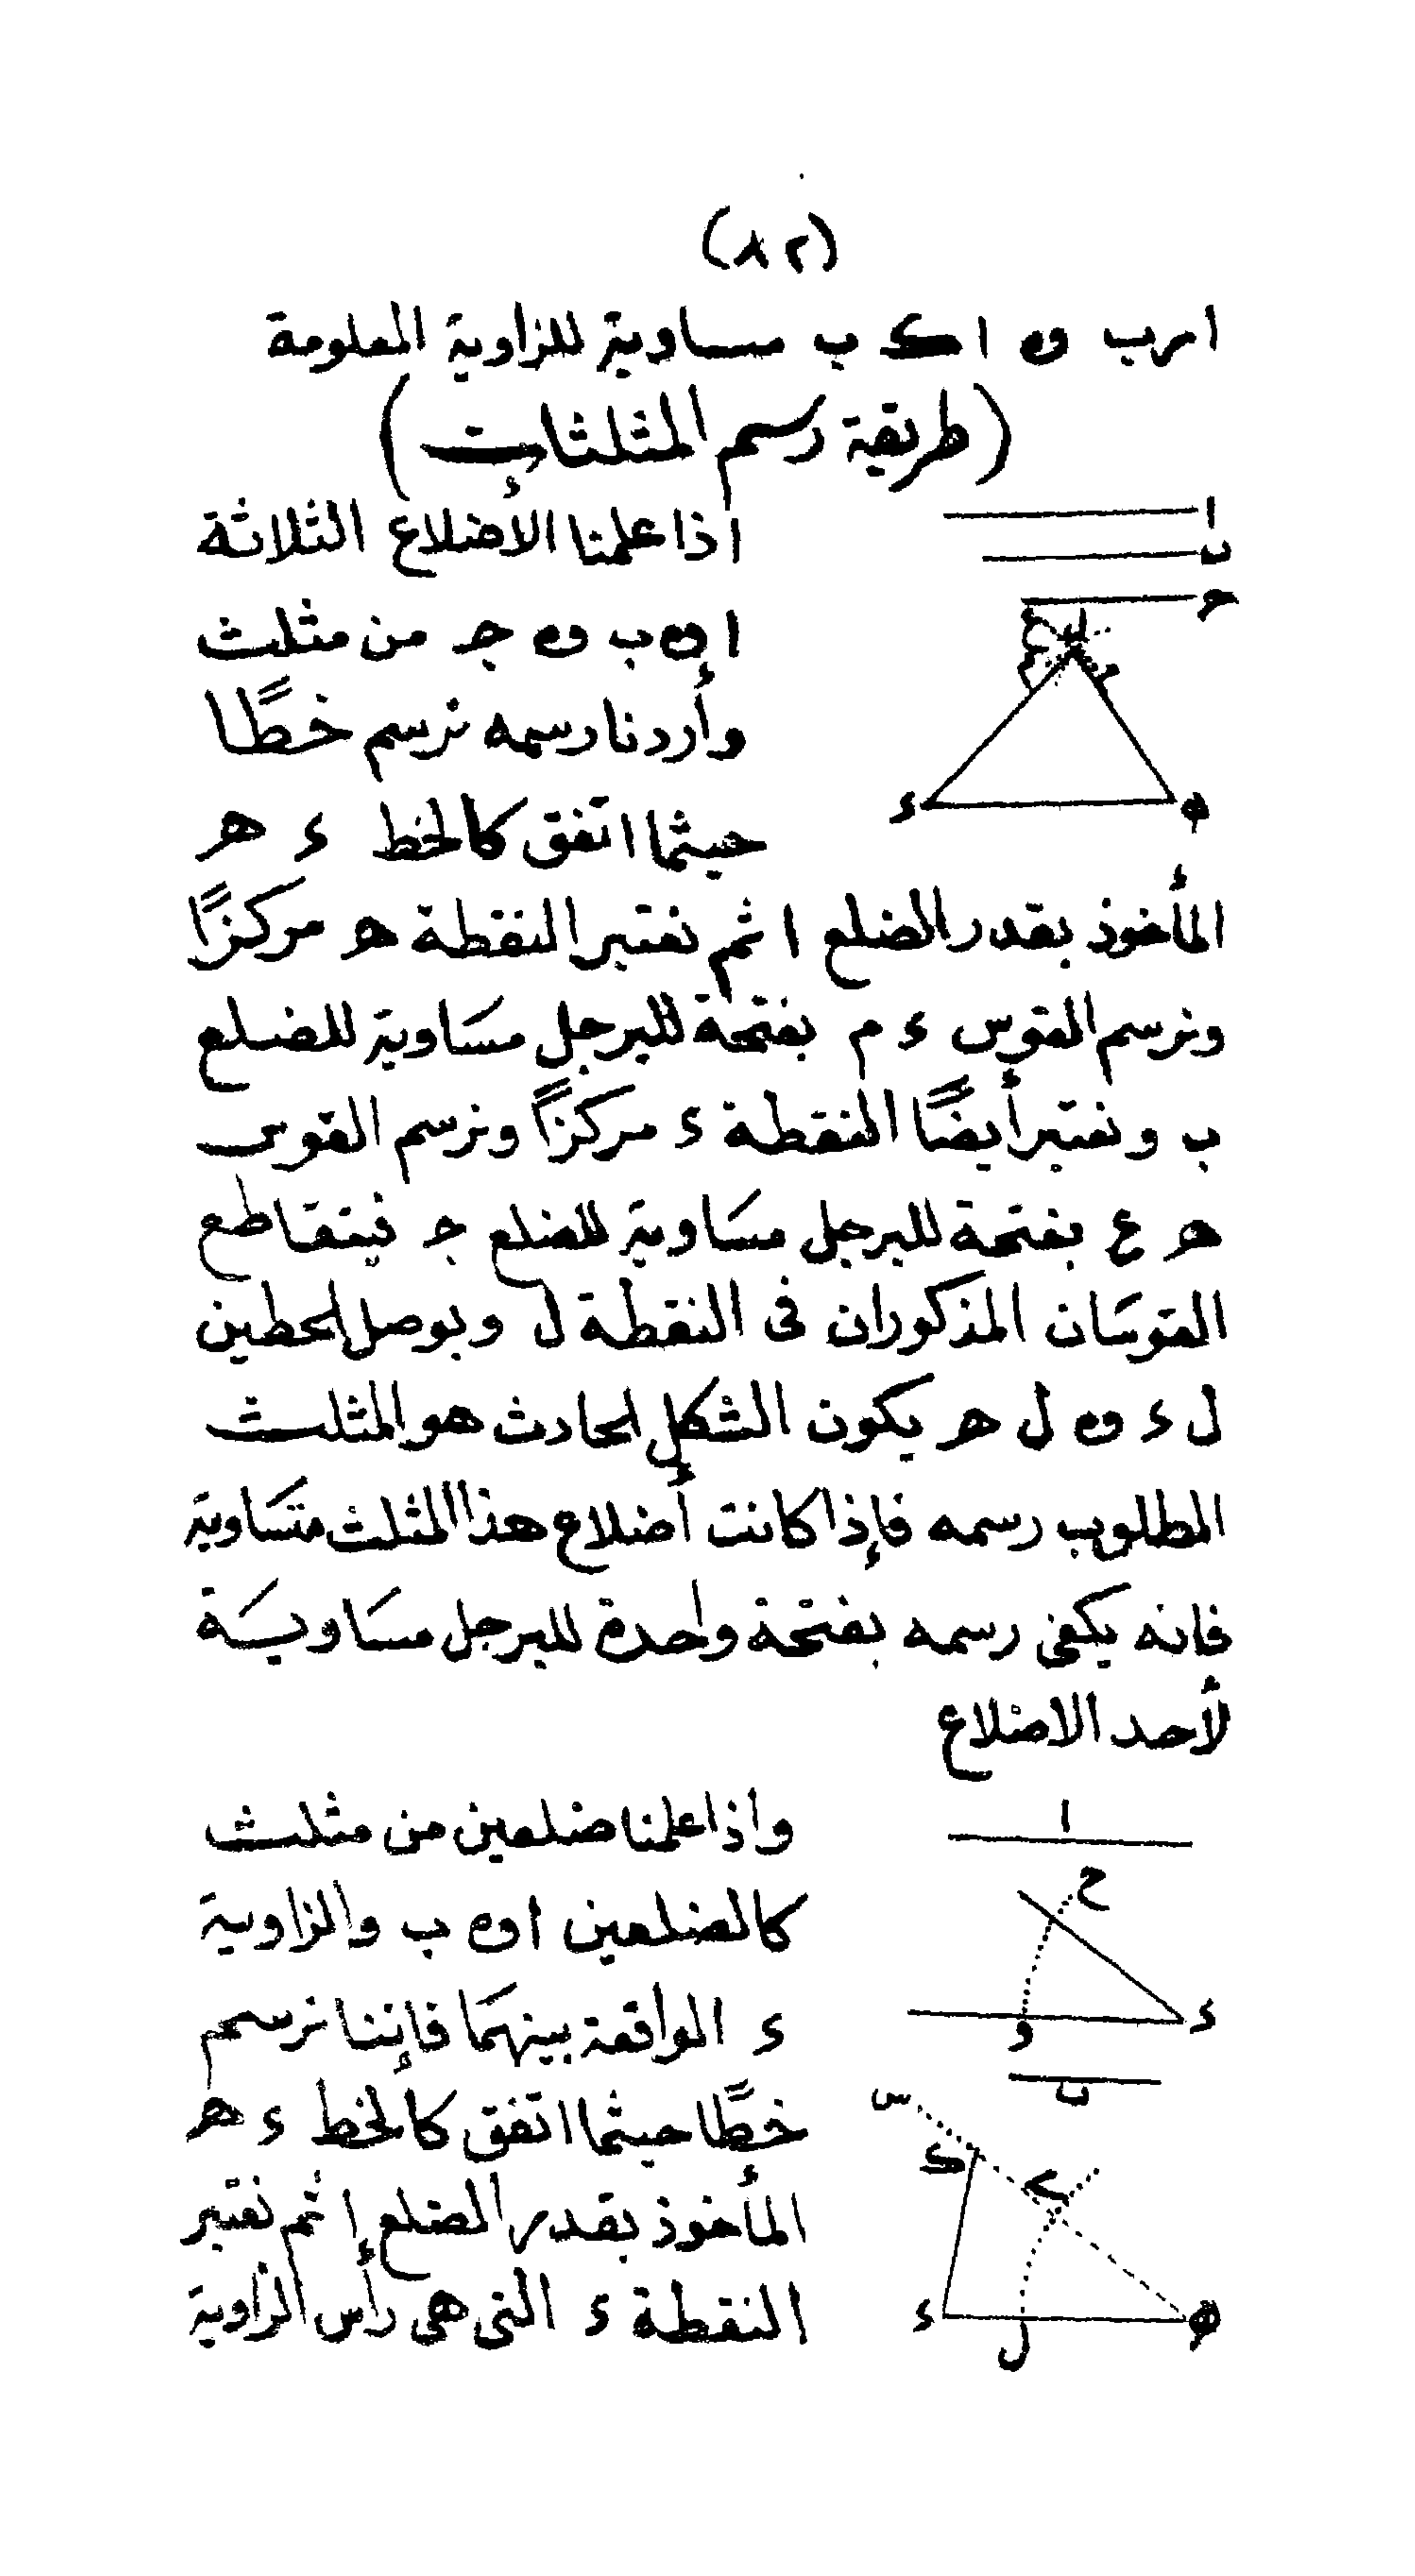 (٨٢)
ا س ب و ا ك ب مساوية للزاوية المعلومة
(طريقة رسم المثلثات)
ا
ب
ح
ع ل
م
ء ه
إذا علمنا الأضلاع الثلاثة
ا و ب و ج من مثلث
وأردنا رسمه نرسم خطًا
حيثما اتفق كالخط ء ه
المأخوذ بقدر الضلع ا ثم نعتبر النقطة ه مركزًا
ونرسم القوس ء م بفتحة للبرجل مسَاوية للضلع
ب ونعتبر أيضًا النقطة ء مركزًا ونرسم القوس
ه ع بفتحة للبرجل مسَاوية للضلع ج فيتقاطع
القوسَان المذكوران فى النقطة ل وبوصل الخطين
ل ء و ل ه يكون الشكل الحادث هو المثلث
المطلوب رسمه فإذا كانت أضلاع هذا المثلث متسَاوية
فانه يكفى رسمه بفتحة واحدة للبرجل مسَاويَة
لأحد الاضلاع
ا
ح
ء
و
ب
س
ك
ء ل ه
واذا علمنا ضلعين من مثلث
كالضلعين ا و ب والزاوية
ء الواقعة بينهمَا فإننا نرسم
خطًا حيثما اتفق كالخط ء ه
المأخوذ بقدر الضلع ا ثم نعتبر
النقطة ء التى هى رأس الزاوية